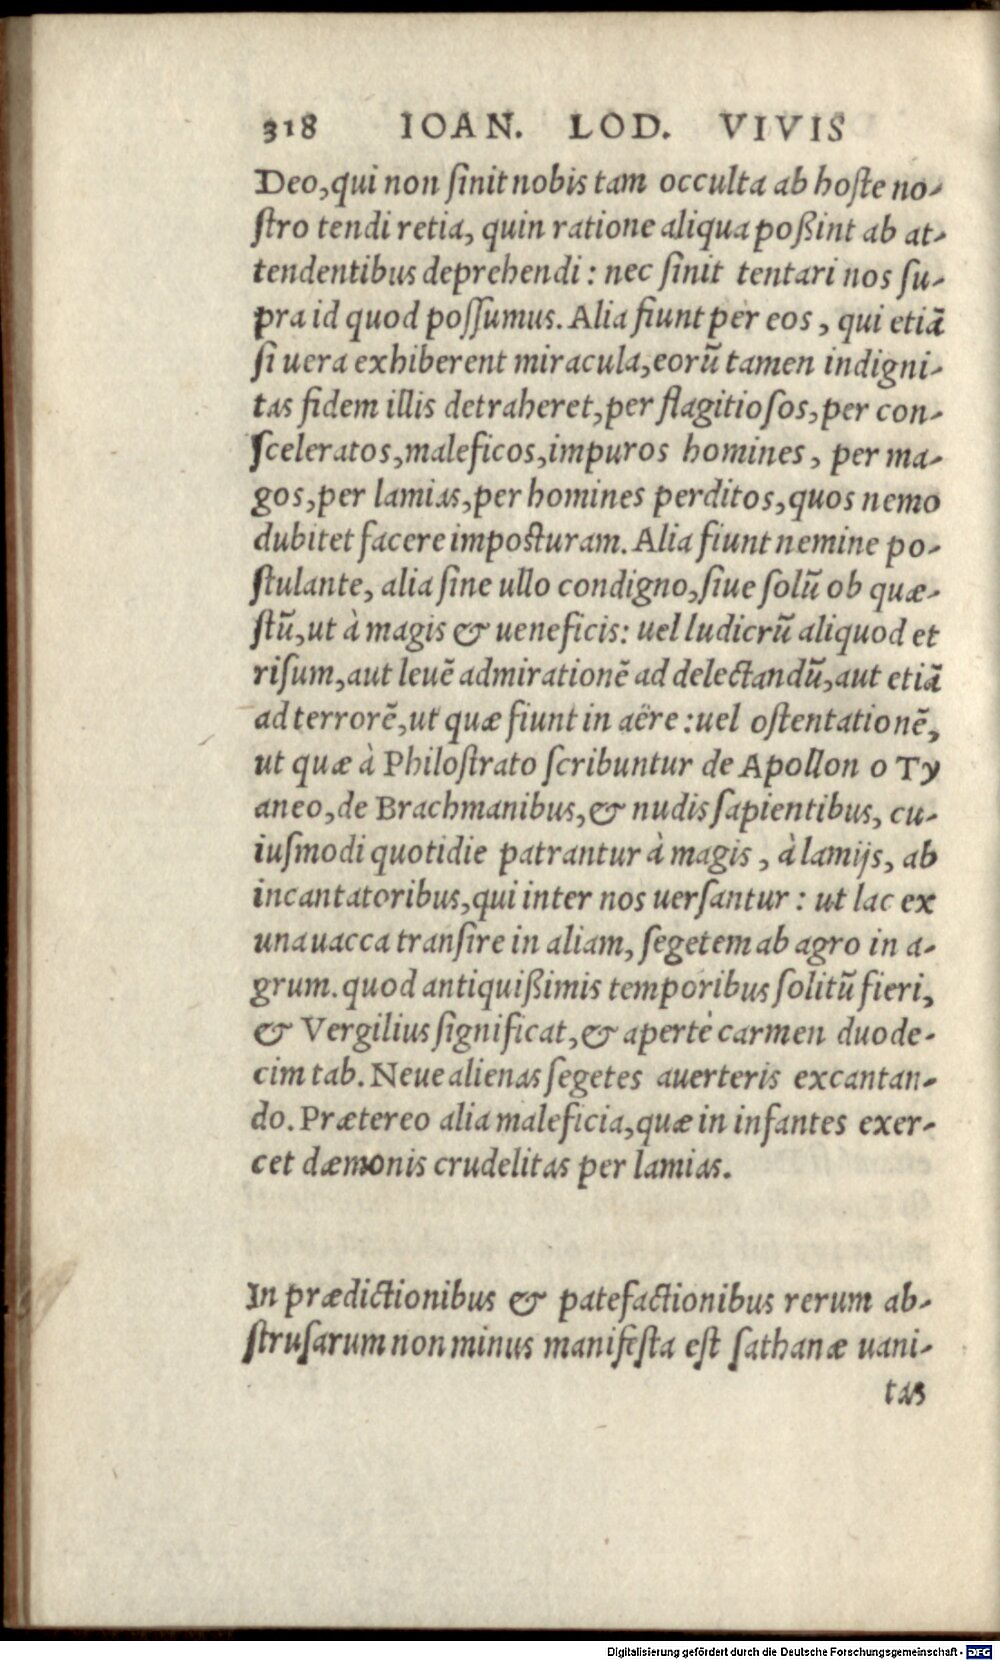 318 IOAN. LOD. VIVIS
Deo, qui non ſinit nobis tam occulta ab hoſte no-
ſtro tendi retia, quin ratione aliqua poßint ab at-
tendentibus deprehendi: nec ſinit tentari nos ſu-
pra id quod poſſumus. Alia fiunt per eos, qui etiã
ſi uera exhiberent miracula, eorũ tamen indigni-
tas fidem illis detraheret, per flagitioſos, per con-
ſceleratos, maleficos, impuros homines, per ma-
gos, per lamias, per homines perditos, quos nemo
dubitet facere impoſturam. Alia fiunt nemine po-
ſtulante, alia ſine ullo condigno, ſiue ſolũ ob quæ-
ſtũ, ut à magis & ueneficis: uel ludicrũ aliquod et
riſum, aut leuẽ admirationẽ ad delectandũ, aut etiã
ad terrorẽ, ut quæ fiunt in aëre: uel oſtentationẽ,
ut quæ à Philoſtrato ſcribuntur de Apollon o Ty
aneo, de Brachmanibus, & nudis ſapientibus, cu-
iuſmodi quotidie patrantur à magis, à lamijs, ab
incantatoribus, qui inter nos uerſantur: ut lac ex
una uacca tranſire in aliam, ſegetem ab agro in a-
grum. quod antiquißimis temporibus ſolitũ fieri,
& Vergilius ſignificat, & apertè carmen duode-
cim tab. Neue alienas ſegetes auerteris excantan-
do. Prætereo alia maleficia, quæ in infantes exer-
cet dæmonis crudelitas per lamias.
In prædictionibus & patefactionibus rerum ab-
ſtruſarum non minus manifeſta eſt ſathanæ uani-
tas
Digitalisierung gefördert durch die Deutsche Forschungsgemeinschaft - DFG